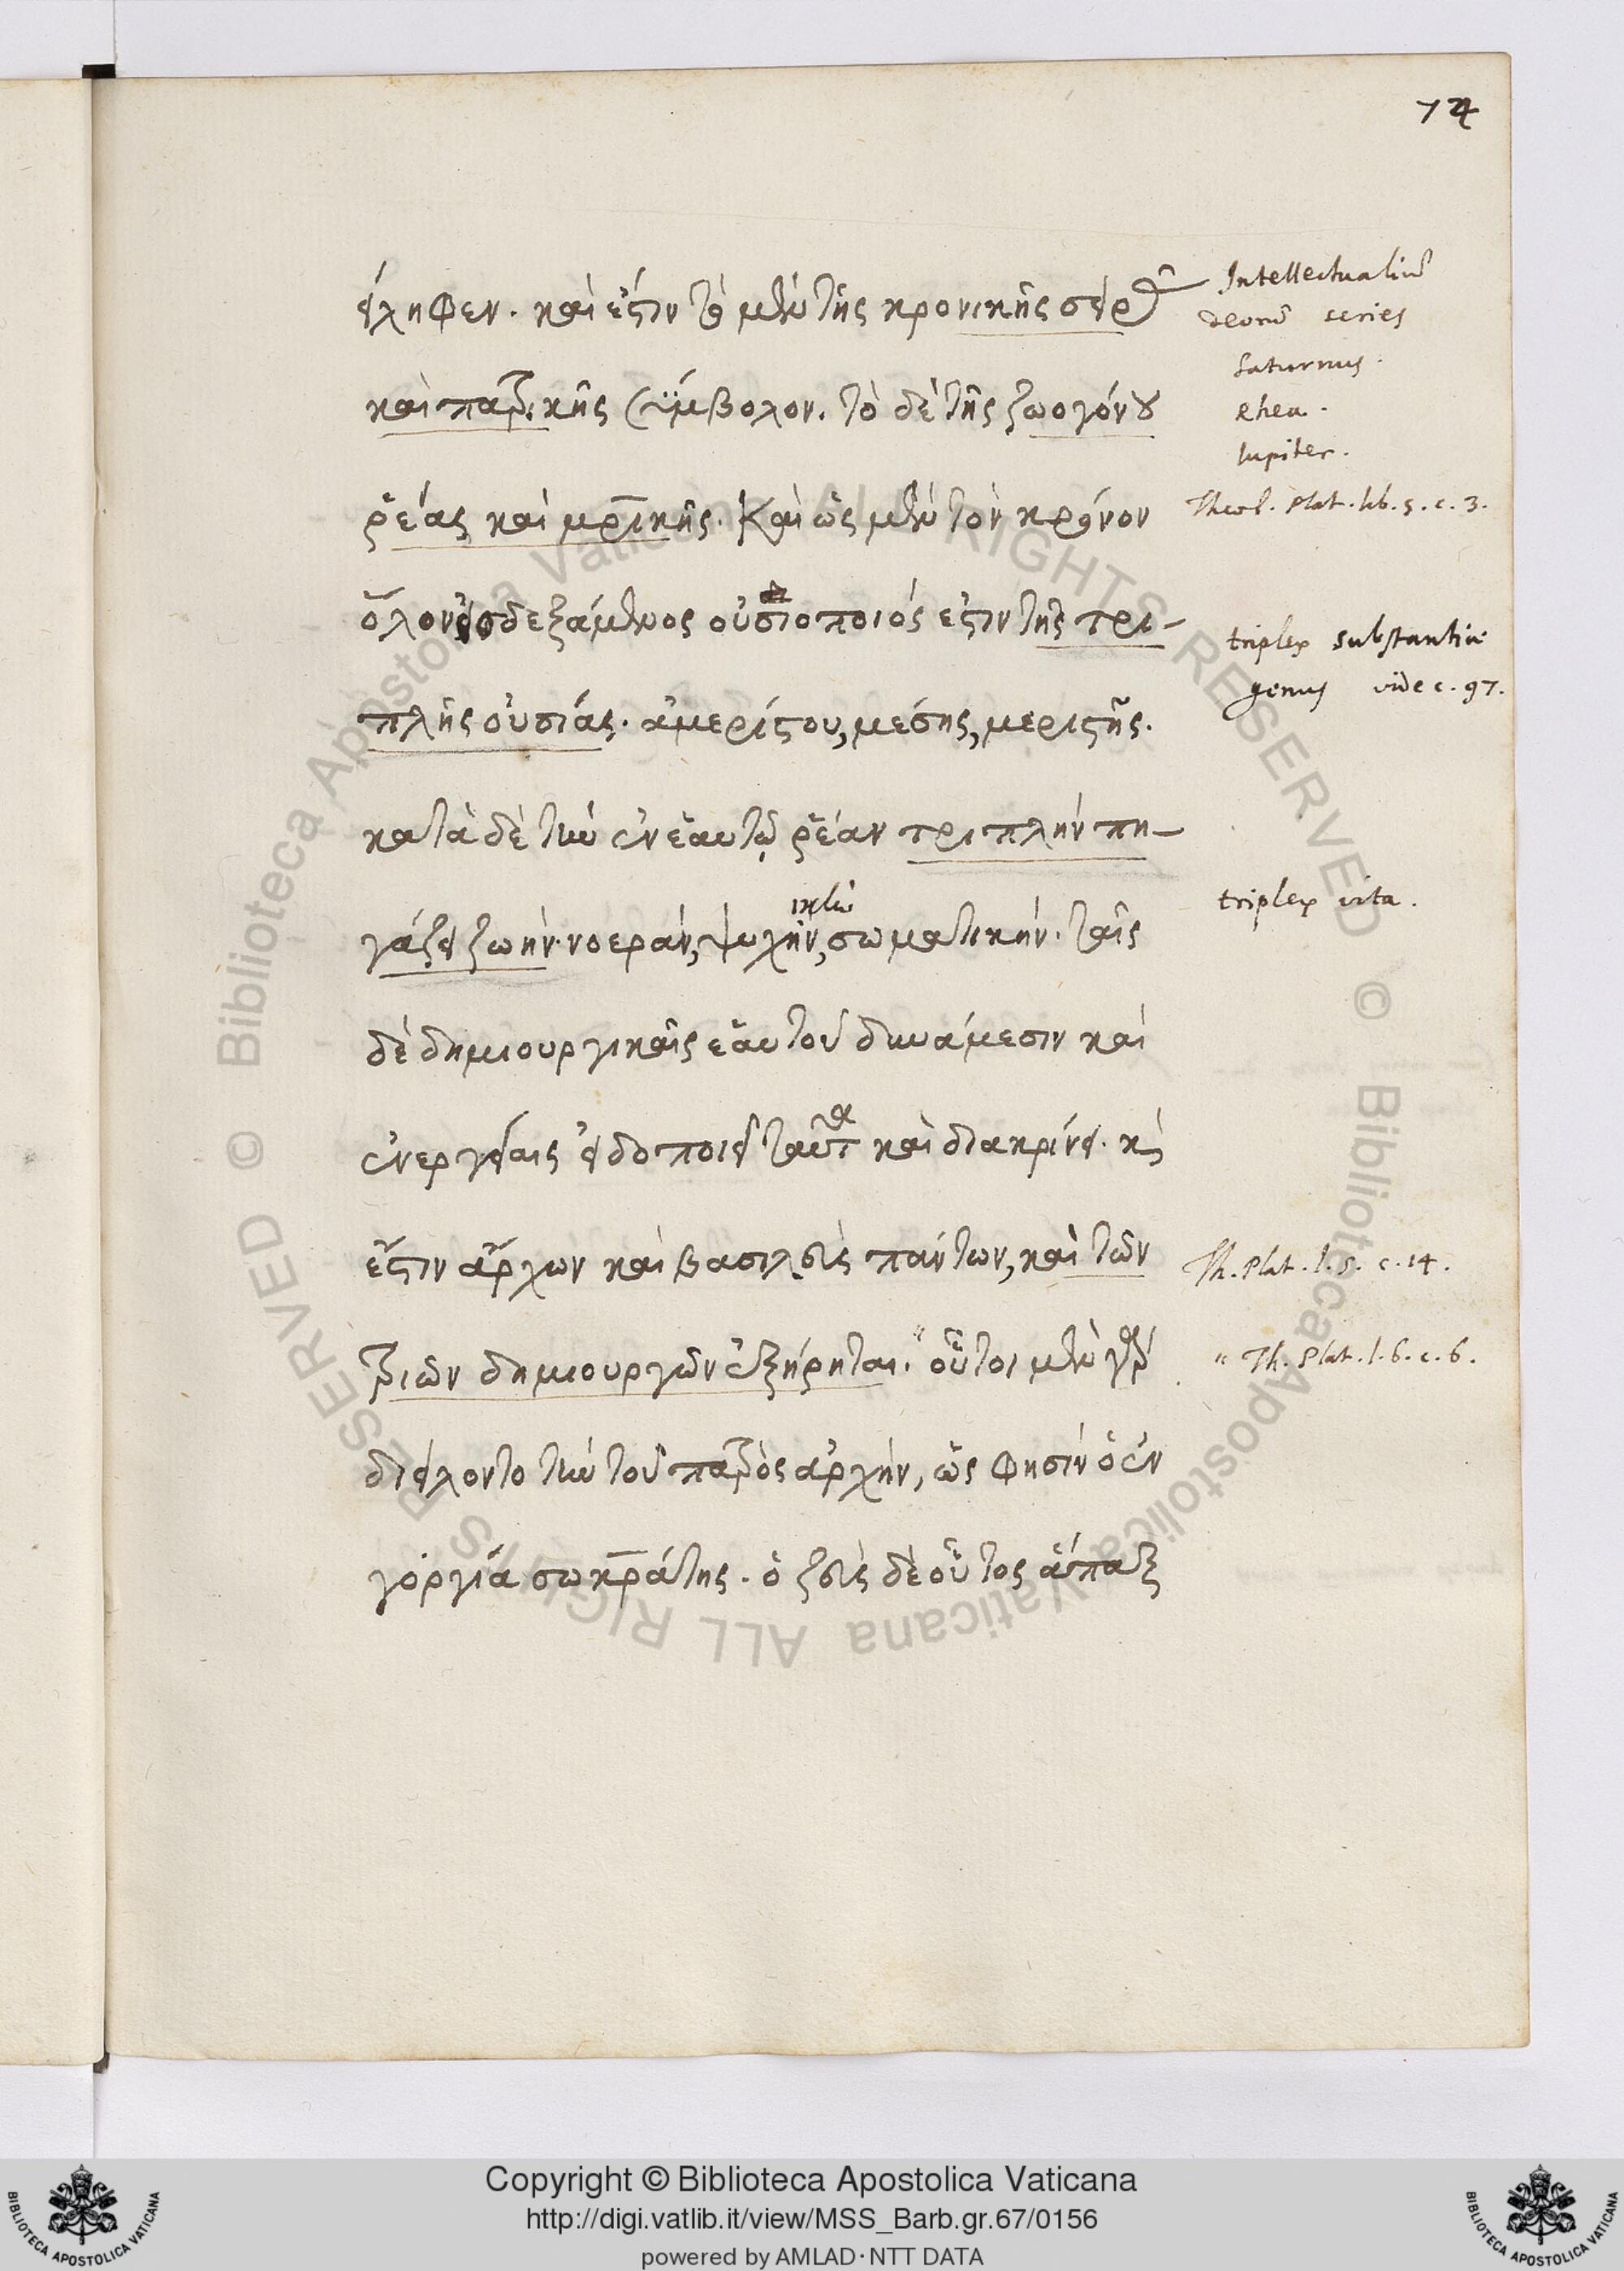 74
είληφεν. καὶ ἔστιν τὸ μὲν τῆς κρονικῆς σειρᾶς
καὶ πατρικῆς σύμβολον. τὸ δὲ τῆς ζωογόνου
ῥέας καὶ μητρικῆς. Καὶ ὡς μὲν τὸν κρόνον
ὅλον εἰσδεξάμενος οὐσιοποιός ἐστιν τῆς τρι-
πλῆς οὐσίας. ἀμερίστου, μέσης, μεριστῆς.
κατὰ δὲ τὴν ἐν ἑαυτῷ ῥέαν τριπλὴν πη-
ικὴν
γάζει ζωήν. νοεράν, ψυχήν, σωματικήν. ταῖς
δὲ δημιουργικαῖς ἑαυτοῦ δυνάμεσιν καὶ
ἐνεργείαις εἰδοποιεῖ ταῦτα καὶ διακρίνει. κὶ
ἔστιν ἄρχων καὶ βασιλεὺς πάντων, καὶ τῶν
τριῶν δημιουργῶν ἐξῄρηται. " οὗτοι μὲν γὰρ
διείλοντο τὴν τοῦ πατρὸς ἀρχήν, ὥς φησιν ὁ ἐν
γοργίᾳ σωκράτης. ὁ ζεὺς δὲ οὗτος ἅπαξ
Intellectualiũ
deorũ series
Saturnus.
Rhea.
Iupiter.
Theol. Plat. lib. 5. c. 3.
triplex substantiæ
genus vide c. 97.
triplex vita.
Th. Plat. l. 5. c. 14.
" Th. Plat. l. 6. c. 6.
© Biblioteca Apostolica Vaticana ALL RIGHTS RESERVED
© Biblioteca Apostolica Vaticana ALL RIGHTS RESERVED
Copyright © Biblioteca Apostolica Vaticana
http://digi.vatlib.it/view/MSS_Barb.gr.67/0156
powered by AMLAD·NTT DATA
BIBLIOTECA APOSTOLICA VATICANA
BIBLIOTECA APOSTOLICA VATICANA